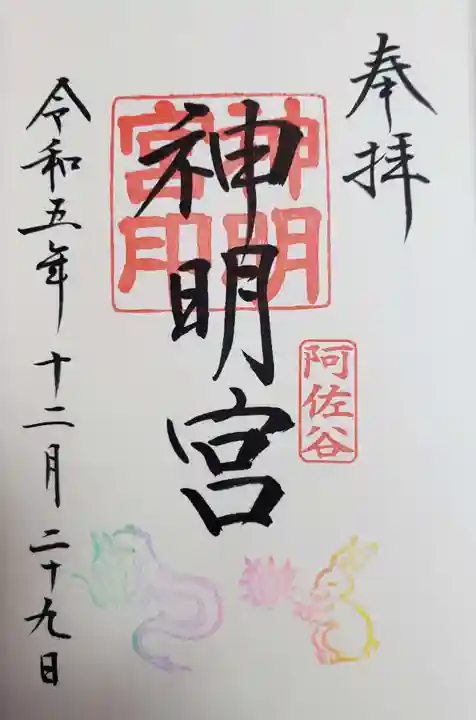 奉拝
神明宮
神明宮印
阿佐谷
令和五年十二月二十九日